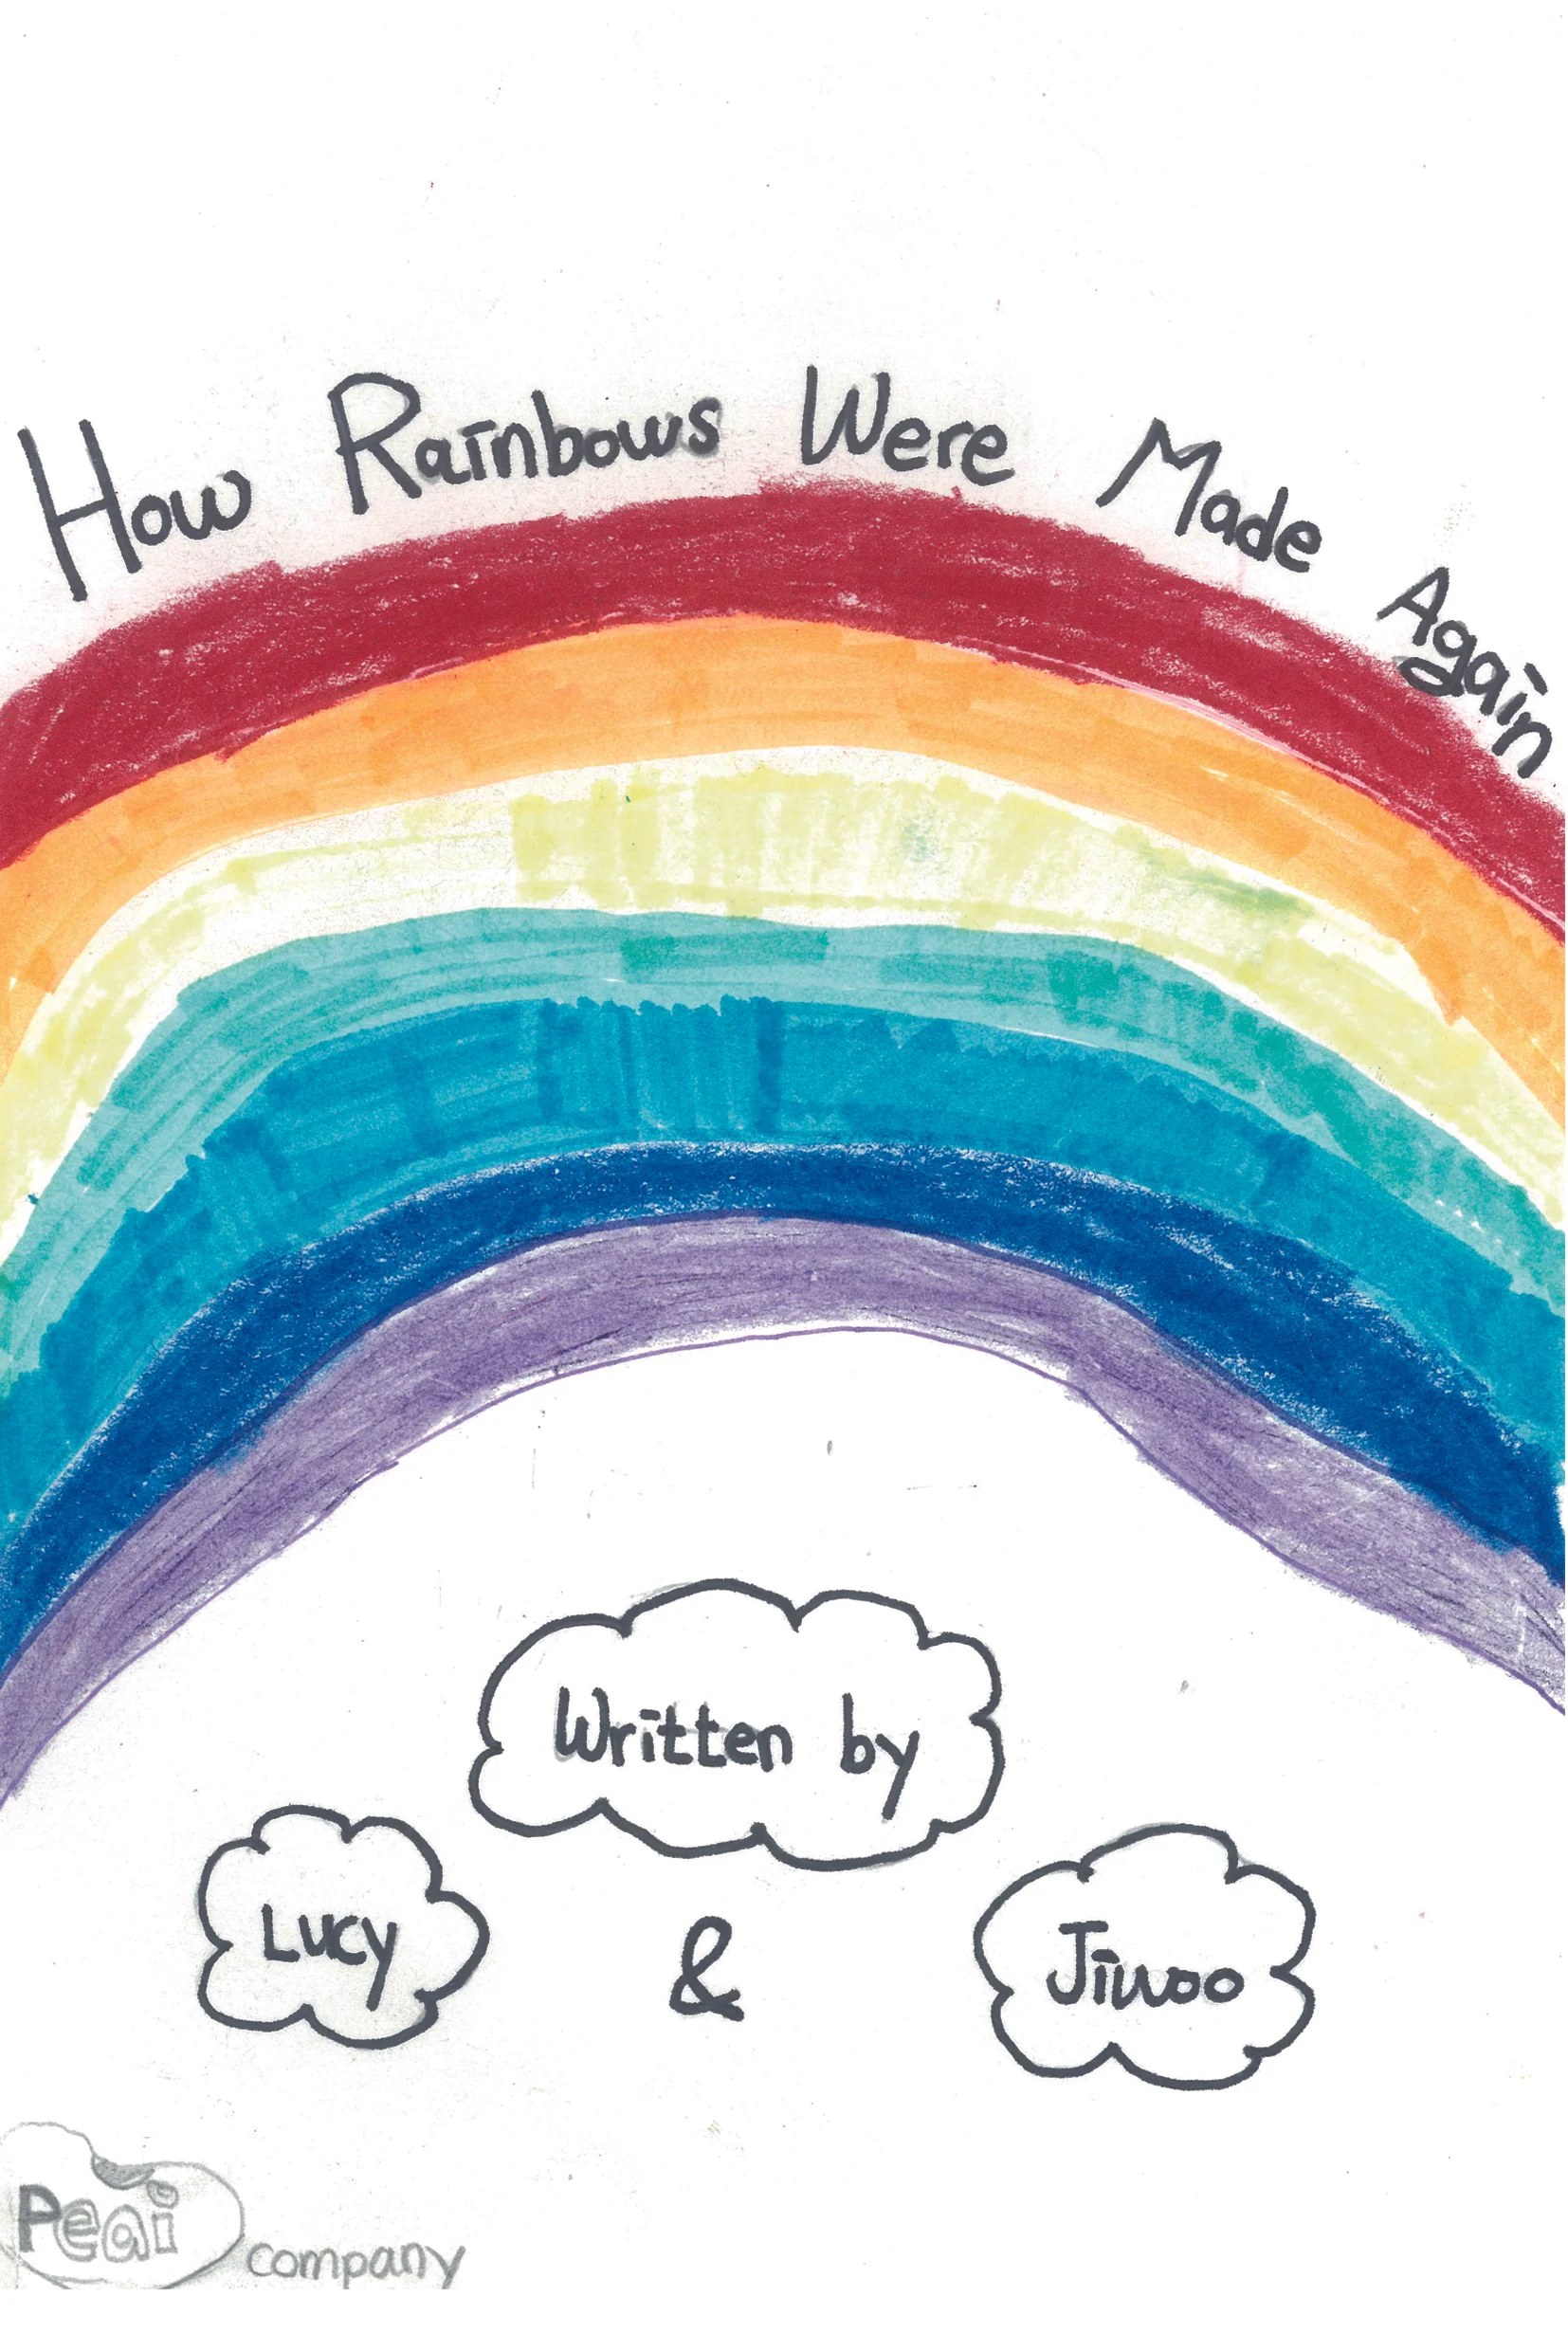 How Rainbows Were Made Again
Written by
Lucy & Jiwoo
Peai company